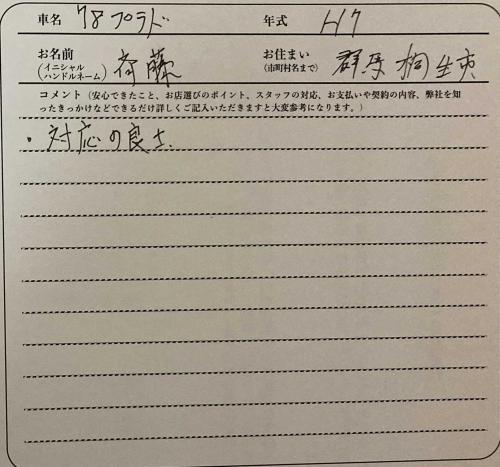 車名 78プラド 年式 H7
お名前 (イニシャル ハンドルネーム) 斉藤 お住まい (市町村名まで) 群馬 桐生市
コメント（安心できたこと、お店選びのポイント、スタッフの対応、お支払いや契約の内容、弊社を知
ったきっかけなどできるだけ詳しくご記入いただきますと大変参考になります。）
・対応の良さ